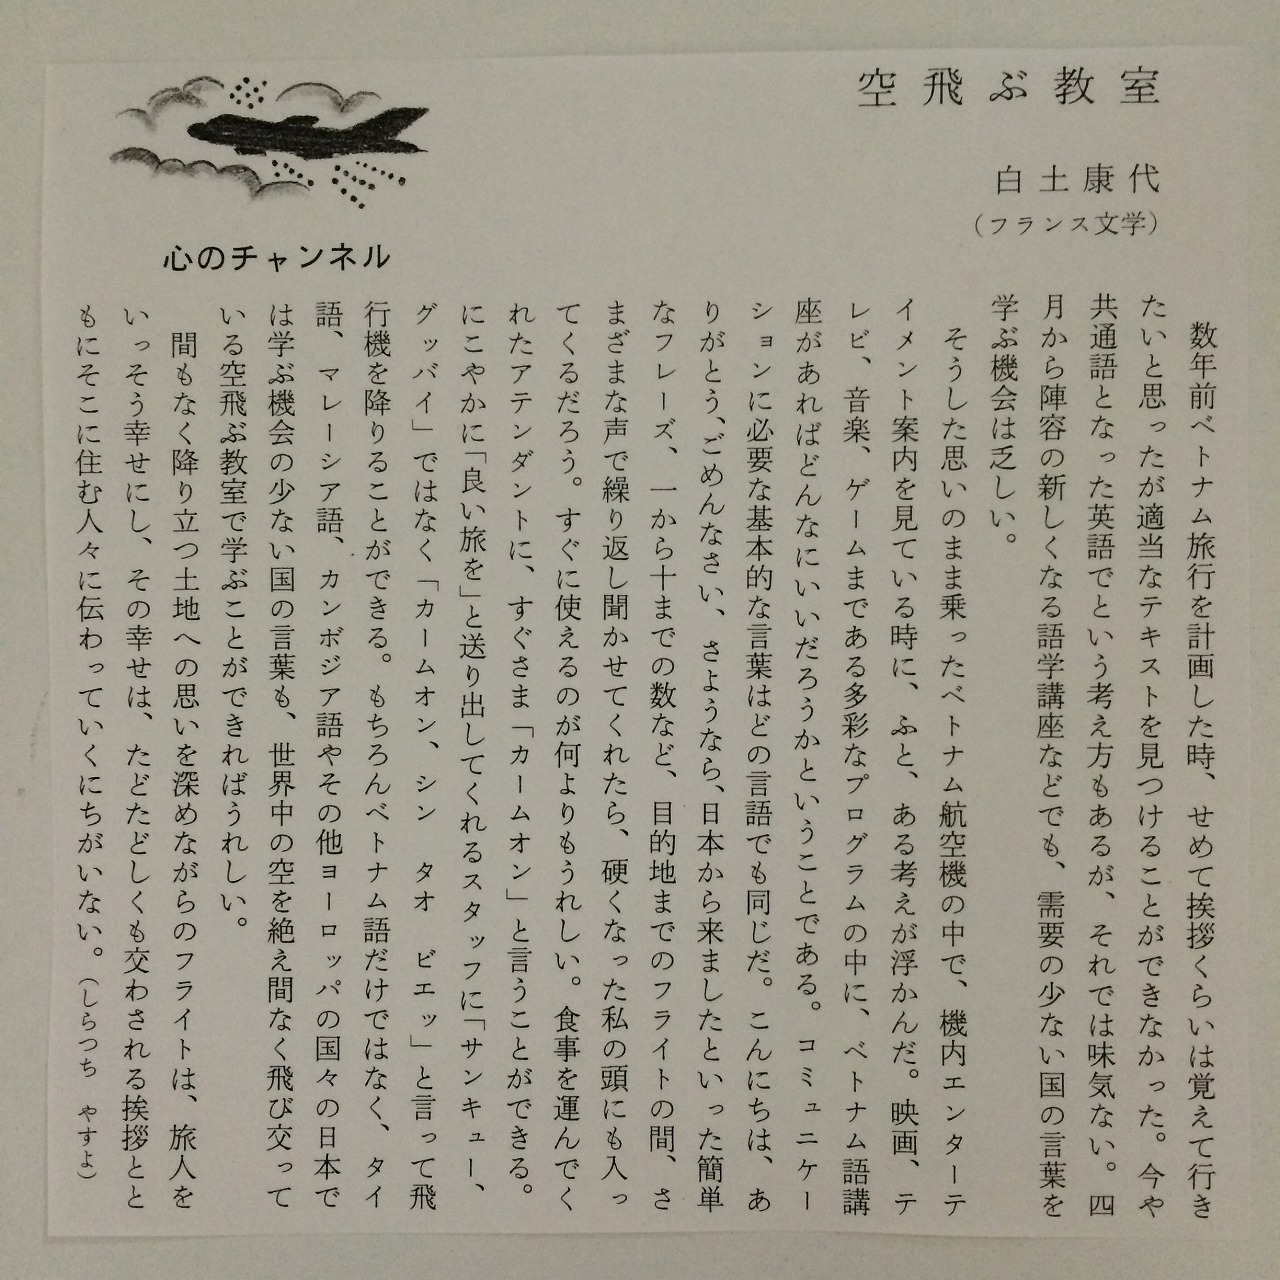 空飛ぶ教室
白土康代
(フランス文学)
心のチャンネル
数年前ベトナム旅行を計画した時、せめて挨拶くらいは覚えて行き
たいと思ったが適当なテキストを見つけることができなかった。今や
共通語となった英語でという考え方もあるが、それでは味気ない。四
月から陣容の新しくなる語学講座などでも、需要の少ない国の言葉を
学ぶ機会は乏しい。
そうした思いのまま乗ったベトナム航空機の中で、機内エンターテ
イメント案内を見ている時に、ふと、ある考えが浮かんだ。映画、テ
レビ、音楽、ゲームまである多彩なプログラムの中に、ベトナム語講
座があればどんなにいいだろうかということである。コミュニケー
ションに必要な基本的な言葉はどの言語でも同じだ。こんにちは、あ
りがとう、ごめんなさい、さようなら、日本から来ましたといった簡単
なフレーズ、一から十までの数など、目的地までのフライトの間、さ
まざまな声で繰り返し聞かせてくれたら、硬くなった私の頭にも入っ
てくるだろう。すぐに使えるのが何よりもうれしい。食事を運んでく
れたアテンダントに、すぐさま「カームオン」と言うことができる。
にこやかに「良い旅を」と送り出してくれるスタッフに「サンキュー、
グッバイ」ではなく「カームオン、シン タオ ビエッ」と言って飛
行機を降りることができる。もちろんベトナム語だけではなく、タイ
語、マレーシア語、カンボジア語やその他ヨーロッパの国々の日本で
は学ぶ機会の少ない国の言葉も、世界中の空を絶え間なく飛び交って
いる空飛ぶ教室で学ぶことができればうれしい。
間もなく降り立つ土地への思いを深めながらのフライトは、旅人を
いっそう幸せにし、その幸せは、たどたどしくも交わされる挨拶とと
もにそこに住む人々に伝わっていくにちがいない。(しらつち やすよ)